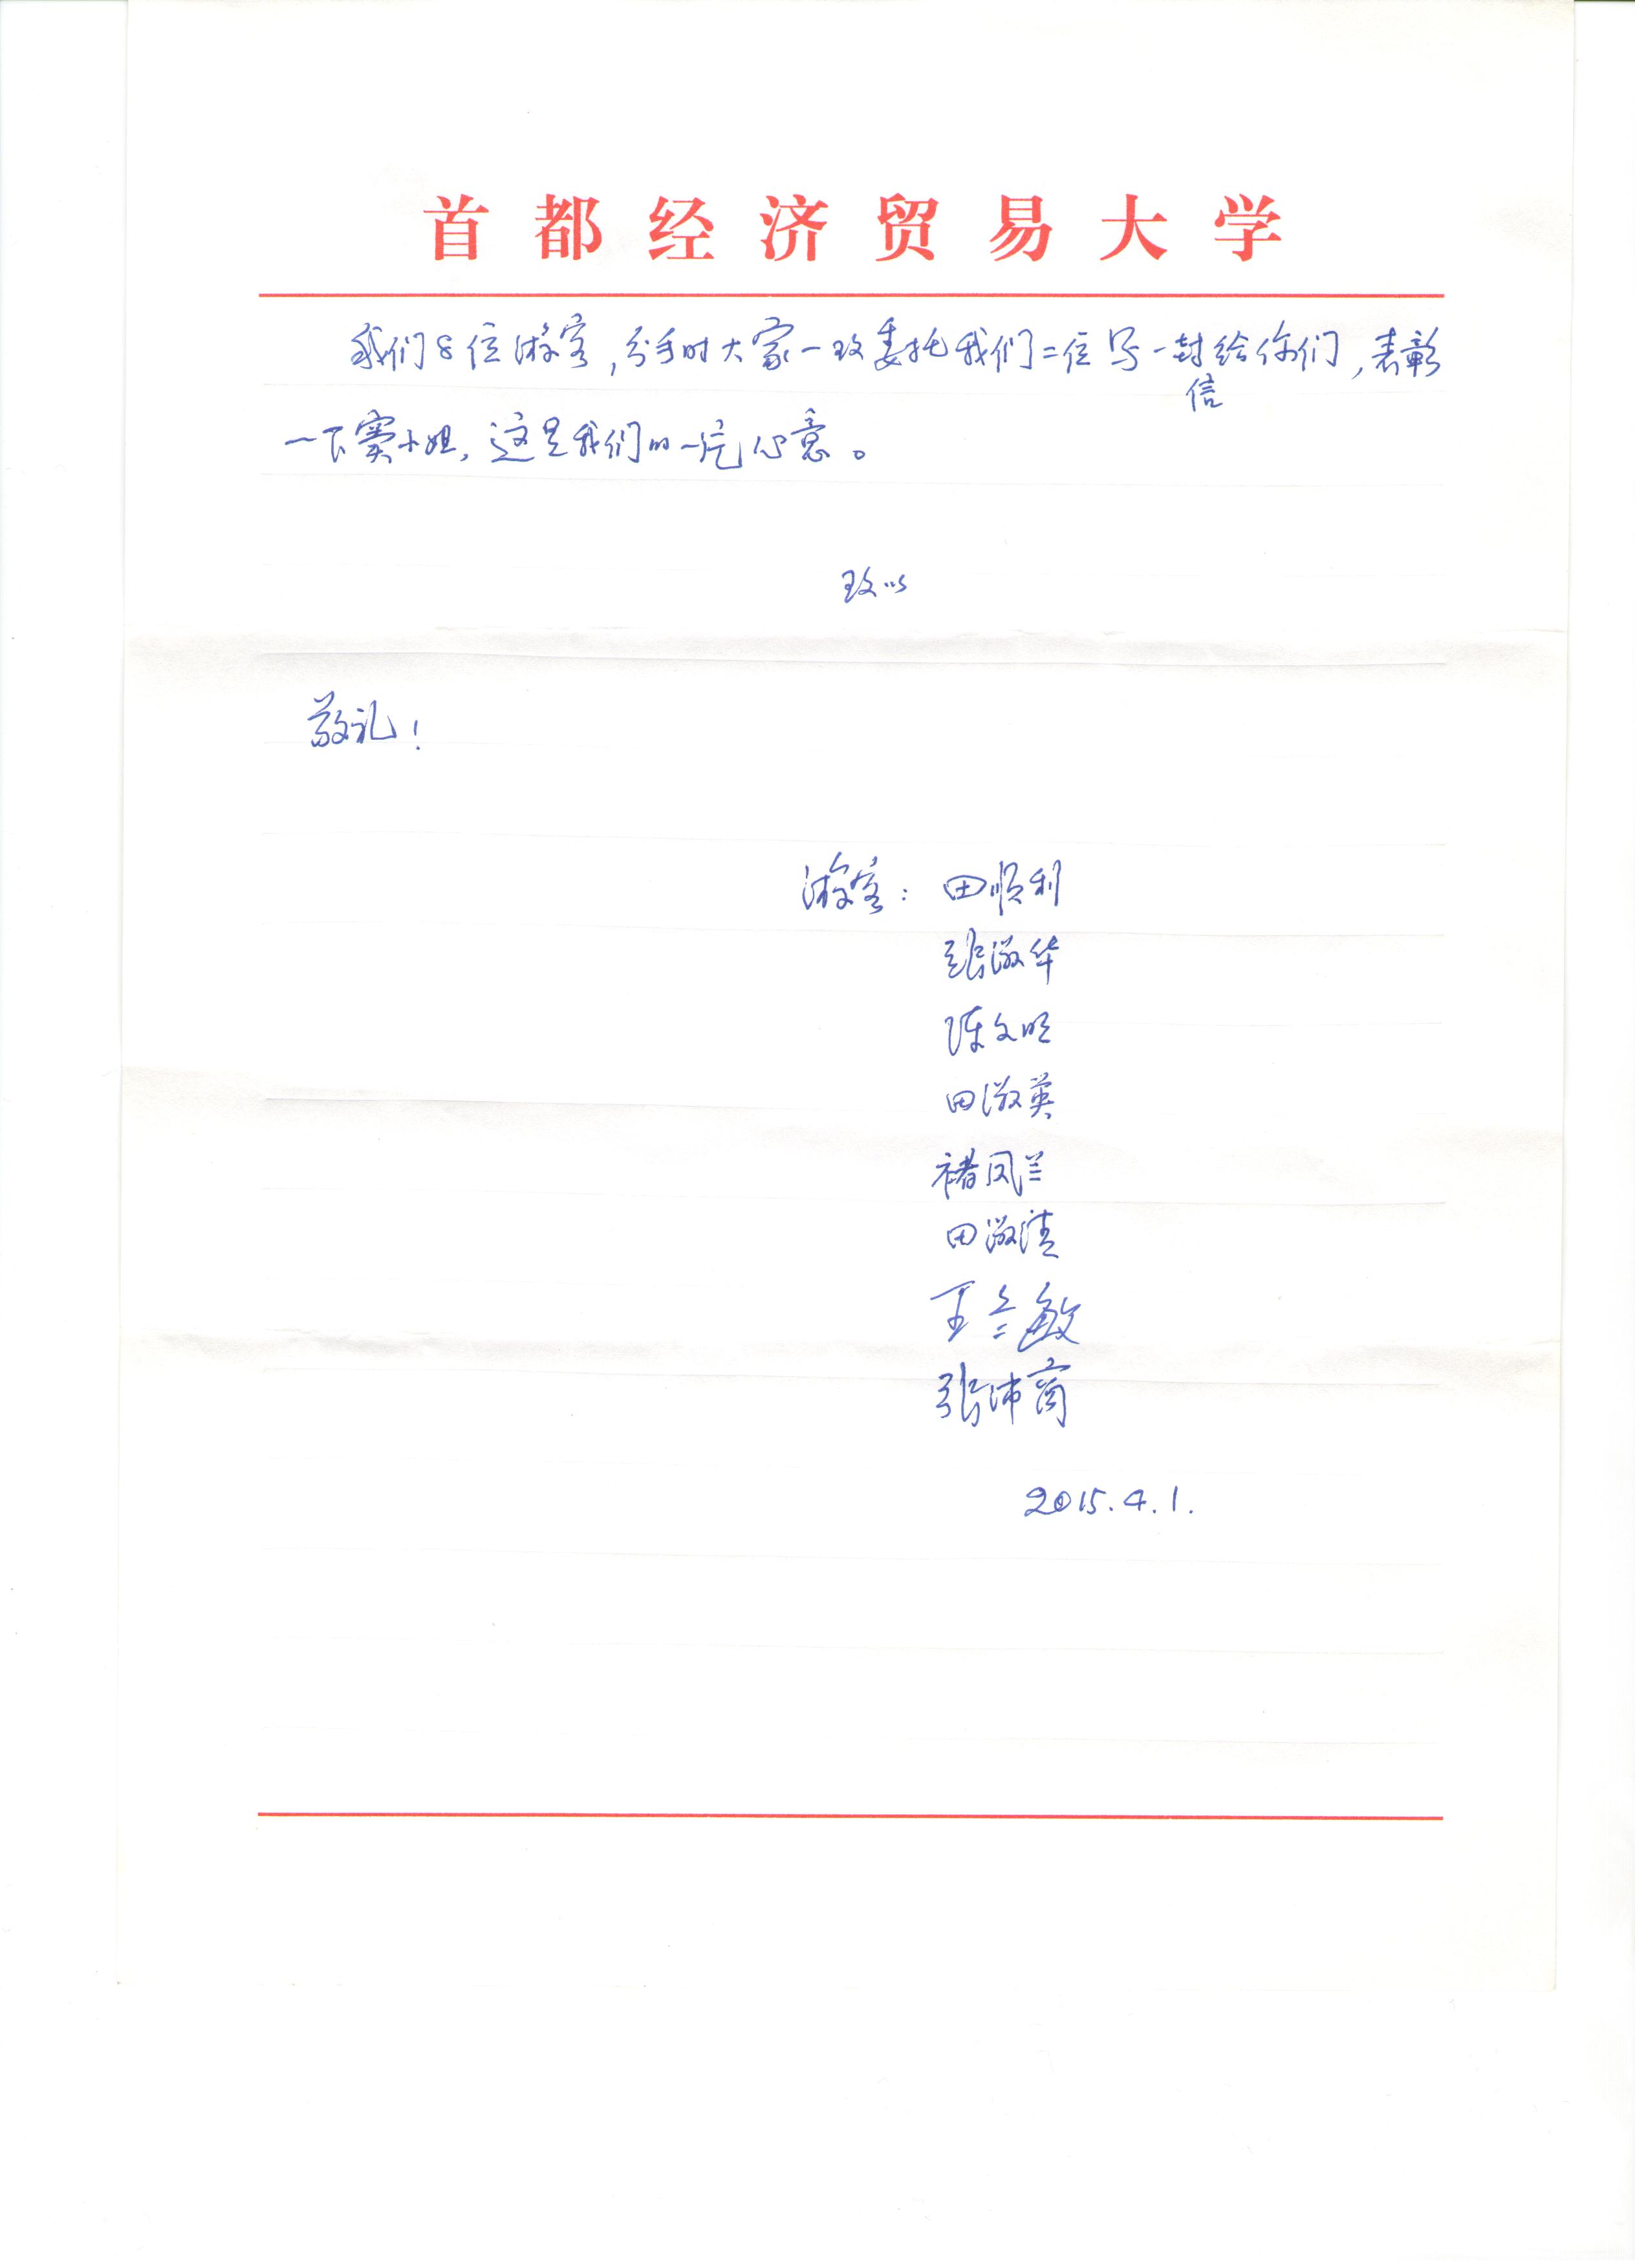 首都经济贸易大学
我们8位游客,分手时大家一致委托我们二位写一封信给你们,表彰
一下窦小姐,这是我们的一片心意。
致以
敬礼!
游客: 田顺利
张淑华
陈文明
田淑英
褚凤兰
田淑清
王兰敏
张沛商
2015.4.1.